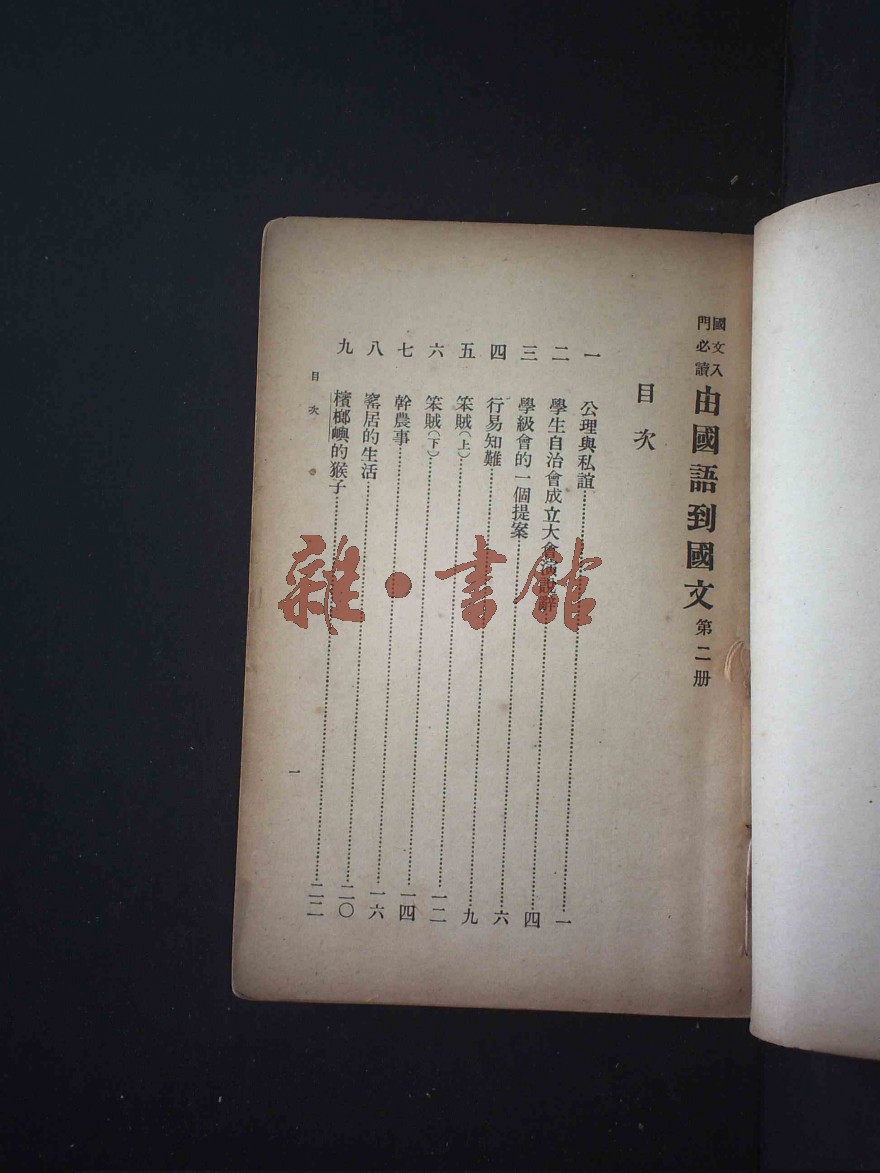 國文入門必讀 由國語到國文 第二册
目次
一 公理與私誼……一
二 學生自治會成立大會演說辭……四
三 學級會的一個提案……六
四 行易知難……九
五 笨賊(上)……一二
六 笨賊(下)……一四
七 幹農事……一六
八 窰居的生活……二〇
九 檳榔嶼的猴子……二二
目次
一
雜·書館